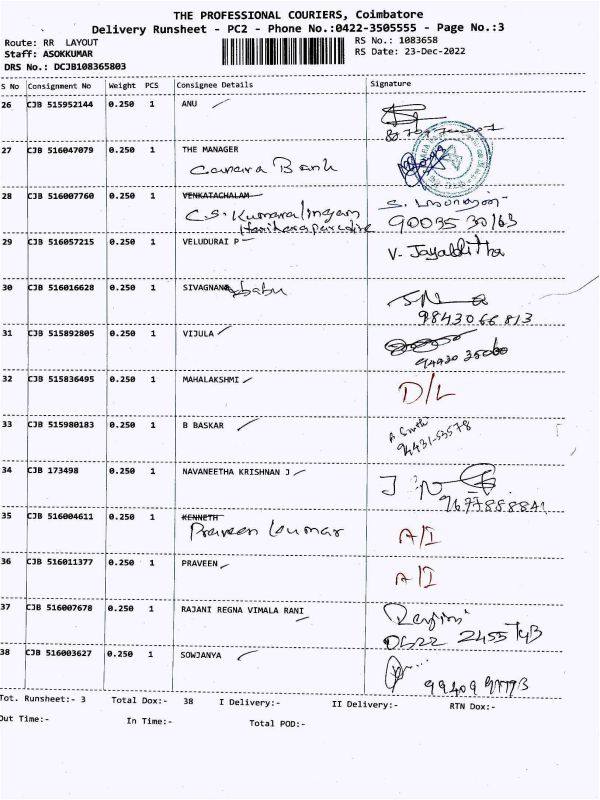 THE PROFESSIONAL COURIERS, Coimbatore
Delivery Runsheet - PC2 - Phone No.:0422-3505555 - Page No.:3
Route: RR LAYOUT
RS No.: 1083658
Staff: ASOKKUMAR
RS Date: 23-Dec-2022
DRS No.: DCJB108365803
S No Consignment No Weight PCS Consignee Details Signature
26 CJB 515952144 0.250 1 ANU
27 CJB 516047079 0.250 1 THE MANAGER
Canara Bank
28 CJB 516007760 0.250 1 VENKATACHALAM
C.S. Kumaralingam
90035 30163
29 CJB 516057215 0.250 1 VELUDURAI P
V. Jayalalitha
30 CJB 516016628 0.250 1 SIVAGNANA babu
9843066813
31 CJB 515892805 0.250 1 VIJULA
32 CJB 515836495 0.250 1 MAHALAKSHMI D/L
33 CJB 515980183 0.250 1 B BASKAR
94431-53578
34 CJB 173498 0.250 1 NAVANEETHA KRISHNAN J
9677858841
35 CJB 516004611 0.250 1 KENNETH
Praveen kumar A/I
36 CJB 516011377 0.250 1 PRAVEEN A/I
37 CJB 516007678 0.250 1 RAJANI REGNA VIMALA RANI
38 CJB 516003627 0.250 1 SOWJANYA
Tot. Runsheet:- 3 Total Dox:- 38 I Delivery:- II Delivery:- RTN Dox:-
Out Time:- In Time:- Total POD:-